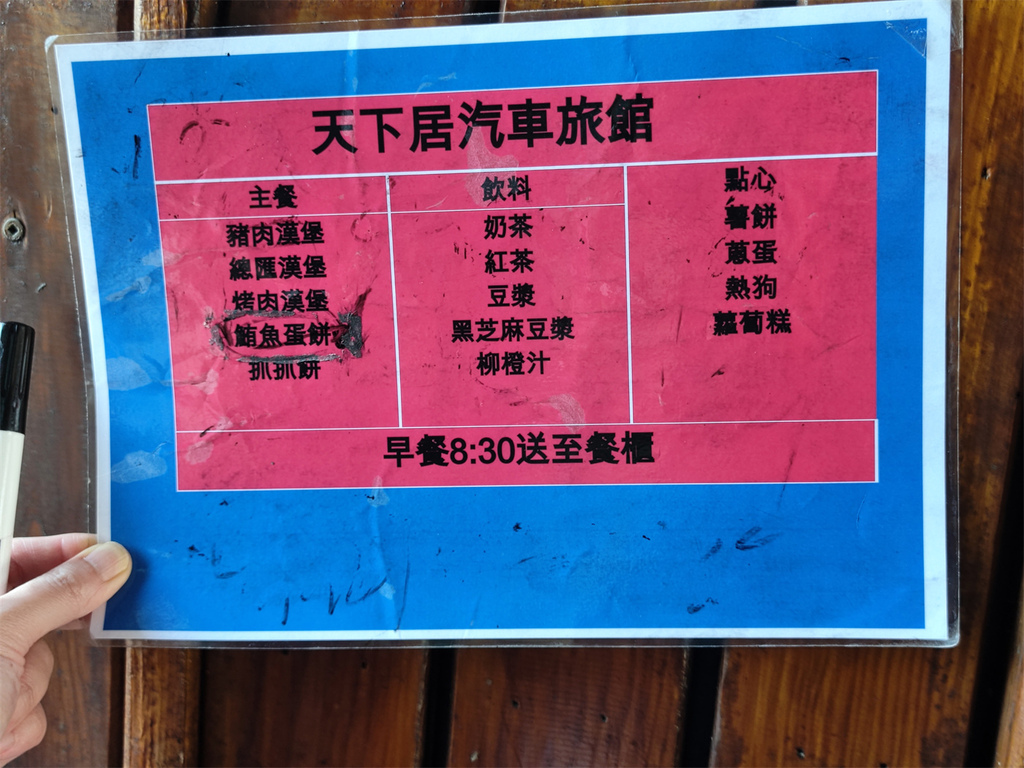 天下居汽車旅館
主餐
豬肉漢堡
總匯漢堡
烤肉漢堡
鮪魚蛋餅
抓抓餅
飲料
奶茶
紅茶
豆漿
黑芝麻豆漿
柳橙汁
點心
薯餅
蔥蛋
熱狗
蘿蔔糕
早餐8:30送至餐櫃